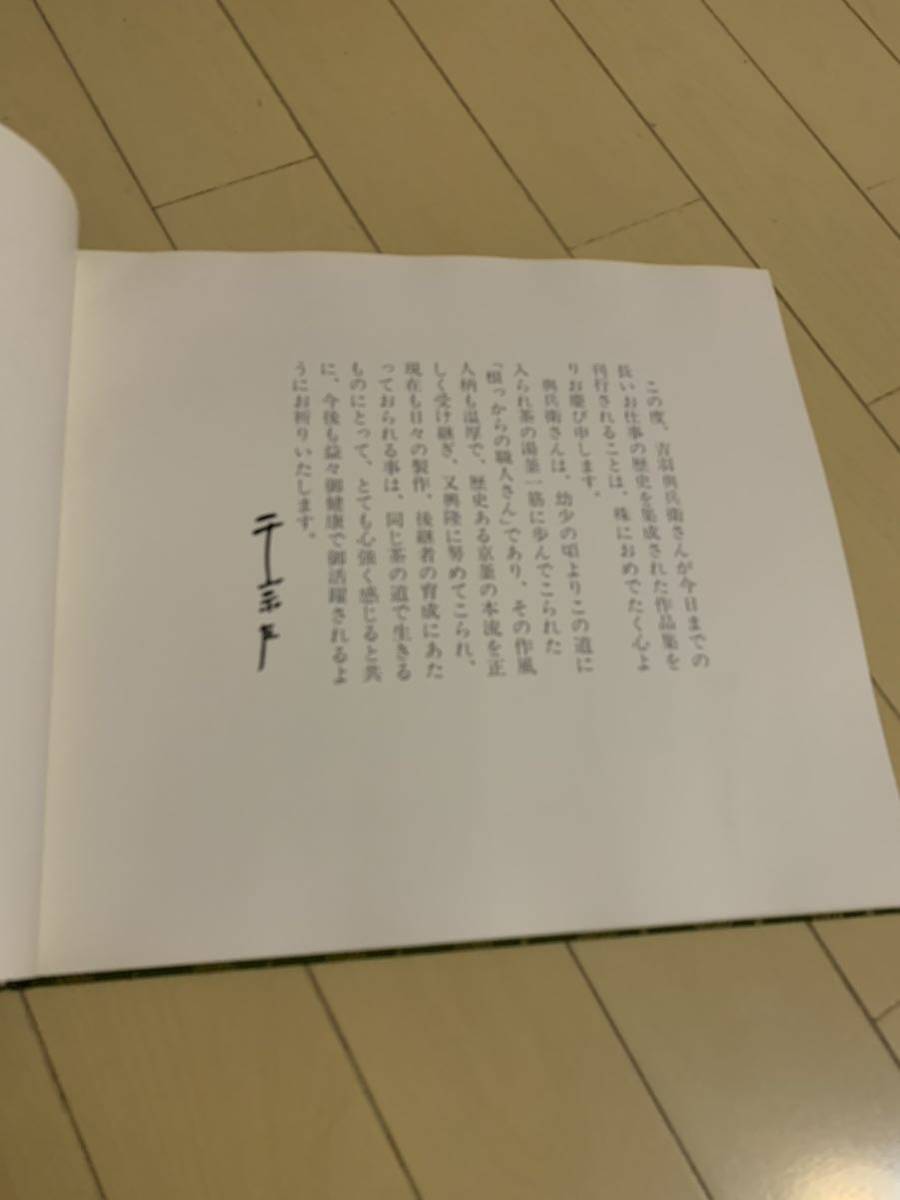 この度、吉羽與兵衛さんが今日までの
長いお仕事の歴史を集成された作品集を
刊行されることは、殊におめでたく心よ
りお慶び申します。
與兵衛さんは、幼少の頃よりこの道に
入られ茶の湯釜一筋に歩んでこられた
「根っからの職人さん」であり、その作風
人柄も温厚で、歴史ある京釜の本流を正
しく受け継ぎ、又興隆に努めてこられ、
現在も日々の製作、後継者の育成にあた
っておられる事は、同じ茶の道で生きる
ものにとって、とても心強く感じると共
に、今後も益々御健康で御活躍されるよ
うにお祈りいたします。